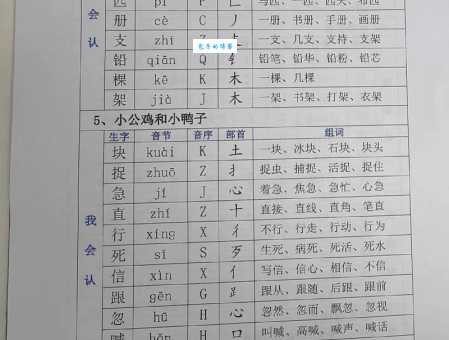 会认
匹 pǐ P 匚
册 cè C 丿 一册、书册、手册、画册
支 zhī Z 一支、几支、支持、支架
爸爸的错善
铅 qiān Q 钅 铅笔、铅华、铅粉、铅芯
棵 kē K 木 一棵、几棵
架 jià J 木 一架、书架、打架、衣架
5、小公鸡和小鸭子
生字 音节 音序 部首 组词
我会认
块 kuài K 土 一块、冰块、石块、块头
捉 zhuō Z 扌 捉虫、捕捉、活捉、捉住
急 jí J 心 着急、焦急、急忙、心急
直 zhí Z 十 直接、直线、直角、笔直
行 xíng X 彳 不行、行走、行动、行为
死 sǐ S 歹 生死、病死、死活、死水
信 xìn X 亻 写信、信心、相信、不信
跟 gēn G 𧾷 跟从、跟随、跟后、跟前
忽 hū H 心 忽然、忽而、飘忽、忽视
喊 hǎn H 口 叫喊、高喊、喊声、喊话